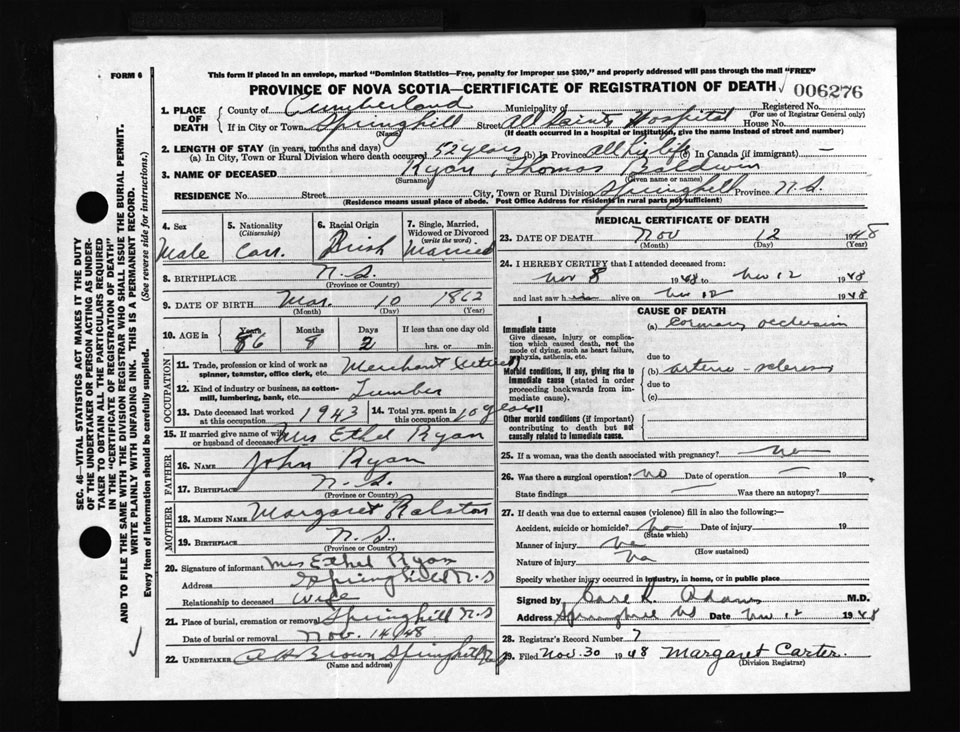 FORM 6
This form if placed in an envelope, marked "Dominion Statistics—Free, penalty for improper use $300," and properly addressed will pass through the mail "FREE"
PROVINCE OF NOVA SCOTIA—CERTIFICATE OF REGISTRATION OF DEATH 006276
1. PLACE OF DEATH County of Cumberland Municipality of Registered No.
(For use of Registrar General only)
If in City or Town Springhill Street All Saints Hospital House No.
(Name) (If death occurred in a hospital or institution, give the name instead of street and number)
2. LENGTH OF STAY (in years, months and days)
(a). In City, Town or Rural Division where death occurred 52 years (b) in Province all his life (c) In Canada (if immigrant) —
3. NAME OF DECEASED Ryan, Thomas Baldwin
(Surname) (Given name or names)
RESIDENCE No. Street City, Town or Rural Division Springhill Province N.S.
(Residence means usual place of abode. Post Office Address for residents in rural parts not sufficient)
4. Sex Male
5. Nationality (Citizenship) Can.
6. Racial Origin Irish
7. Single, Married, Widowed or Divorced (write the word) Married
8. BIRTHPLACE N.S.
(Province or Country)
9. DATE OF BIRTH Mar. 10 1862
(Month) (Day) (Year)
10. AGE in Years 86 Months 8 Days 2 If less than one day old
hrs. or min.
OCCUPATION
11. Trade, profession or kind of work as spinner, teamster, office clerk, etc. Merchant (retired)
12. Kind of industry or business, as cotton-mill, lumbering, bank, etc. Lumber
13. Date deceased last worked at this occupation 1943 14. Total yrs. spent in this occupation 10 years
15. If married give name of wife or husband of deceased Mrs Ethel Ryan
FATHER
16. NAME John Ryan
17. BIRTHPLACE N.S.
(Province or Country)
MOTHER
18. MAIDEN NAME Margaret Ralston
19. BIRTHPLACE N.S.
(Province or Country)
20. Signature of informant Mrs Ethel Ryan
Address Springhill N.S
Relationship to deceased Wife
21. Place of burial, cremation or removal Springhill N.S
Date of burial or removal Nov. 14/48
22. UNDERTAKER A H Brown Springhill
(Name and address)
MEDICAL CERTIFICATE OF DEATH
23. DATE OF DEATH Nov 12 1948
(Month) (Day) (Year)
24. I HEREBY CERTIFY that I attended deceased from:
Nov 8 1948 to Nov 12 1948
and last saw h alive on Nov 12 1948
CAUSE OF DEATH
I
Immediate cause
Give disease, injury or complication which caused death, not the mode of dying, such as heart failure, asphyxia, asthenia, etc.
(a) coronary occlusion
due to
Morbid conditions, if any, giving rise to immediate cause (stated in order proceeding backwards from immediate cause).
(b) arterio-sclerosis
due to
(c)
II
Other morbid conditions (if important) contributing to death but not causally related to immediate cause.
25. If a woman, was the death associated with pregnancy?
26. Was there a surgical operation? no Date of operation — 19
State findings — Was there an autopsy?
27. If death was due to external causes (violence) fill in also the following:—
Accident, suicide or homicide? no Date of injury 19
(State which)
Manner of injury no
(How sustained)
Nature of injury no
Specify whether injury occurred in industry, in home, or in public place
Signed by Carl Adams M.D.
Address Springhill NS Date Nov 12 1948
28. Registrar's Record Number 7
29. Filed Nov. 30 1948 Margaret Carter.
(Division Registrar)
SEC. 46—VITAL STATISTICS ACT MAKES IT THE DUTY
OF THE UNDERTAKER OR PERSON ACTING AS UNDER-
TAKER TO OBTAIN ALL THE PARTICULARS REQUIRED
IN THE "CERTIFICATE OF REGISTRATION OF DEATH"
AND TO FILE THE SAME WITH THE DIVISION REGISTRAR WHO SHALL ISSUE THE BURIAL PERMIT.
WRITE PLAINLY WITH UNFADING INK. THIS IS A PERMANENT RECORD.
Every item of information should be carefully supplied. (See reverse side for instructions.)